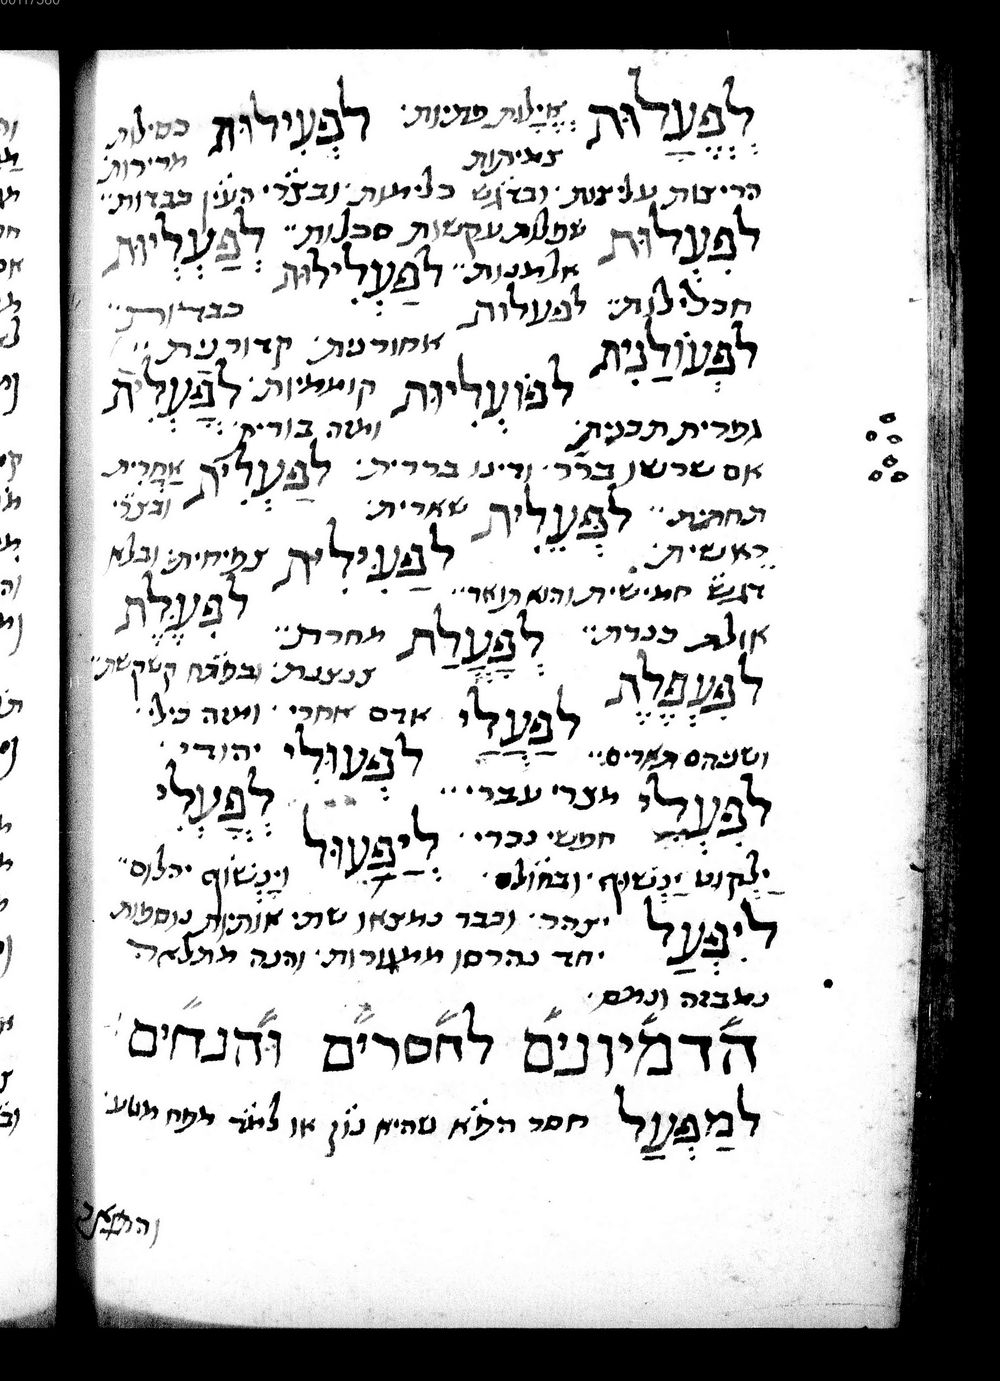 לִפְעָלוּת אֱיָלוּת פתיות׳ לִפְעִילוּת כסילות
צמיתות מרירות׳
הריצות עליצות׳ ובדגש כלימות׳ ובצרי העין כבדות׳׳
לִפְעְלוּת שפלות עקשות סכלות׳׳ לְפַעְלְיוּת
אלמנות׳׳ לפַעְלִילוּת
חכלילות׳׳ לפעלות כבדות׳׳
לפְעוֹלַנִית אחורנית׳ קדורנית׳׳
לפוֹעְלִיוּת קוממיות׳ לפָּעְלִית
גפרית תכנית׳ ומזה בורית׳
אם שרשו ברר׳ ודינו ברירית׳ לפַעֲלִית אַחֲרִית
תחתית׳׳ לפְעֵלִית שארית׳ ובצרי
ראשית׳ לפַעִילִית צמיחית׳ ובלא
דגש חמישית והוא תואר׳׳ לפעֶלֶת
אולת כנרת׳׳ לפָעֳלַת מחרת׳׳
לפַעְפֶלֶת צנצנת׳ ובפתח קשקשת׳׳
לפַעֲלַי אדם אחרי׳ ומזה כילי׳
ושניהם תארים׳׳ לפְעוּלִי יהודי׳
לפִעְלִי מצרי עברי׳׳ לפָעְלִי
חפשי נכרי׳ ליַפְעוּל
יַלְקוּט יַנְשׁוּף׳ ובחולם׳ וינשוף יהלום׳׳
ליִפְעַל יצהר׳ וכבר נמצאו שתי אותיות נוספות
יחד נהרסו ממגורות׳ והנה מתלאה
נמבזה ונמס׳
הדמיונים לחסרים והנחים
למַפְעַל חסר הפא שהיא נון או למד מפח מטע׳